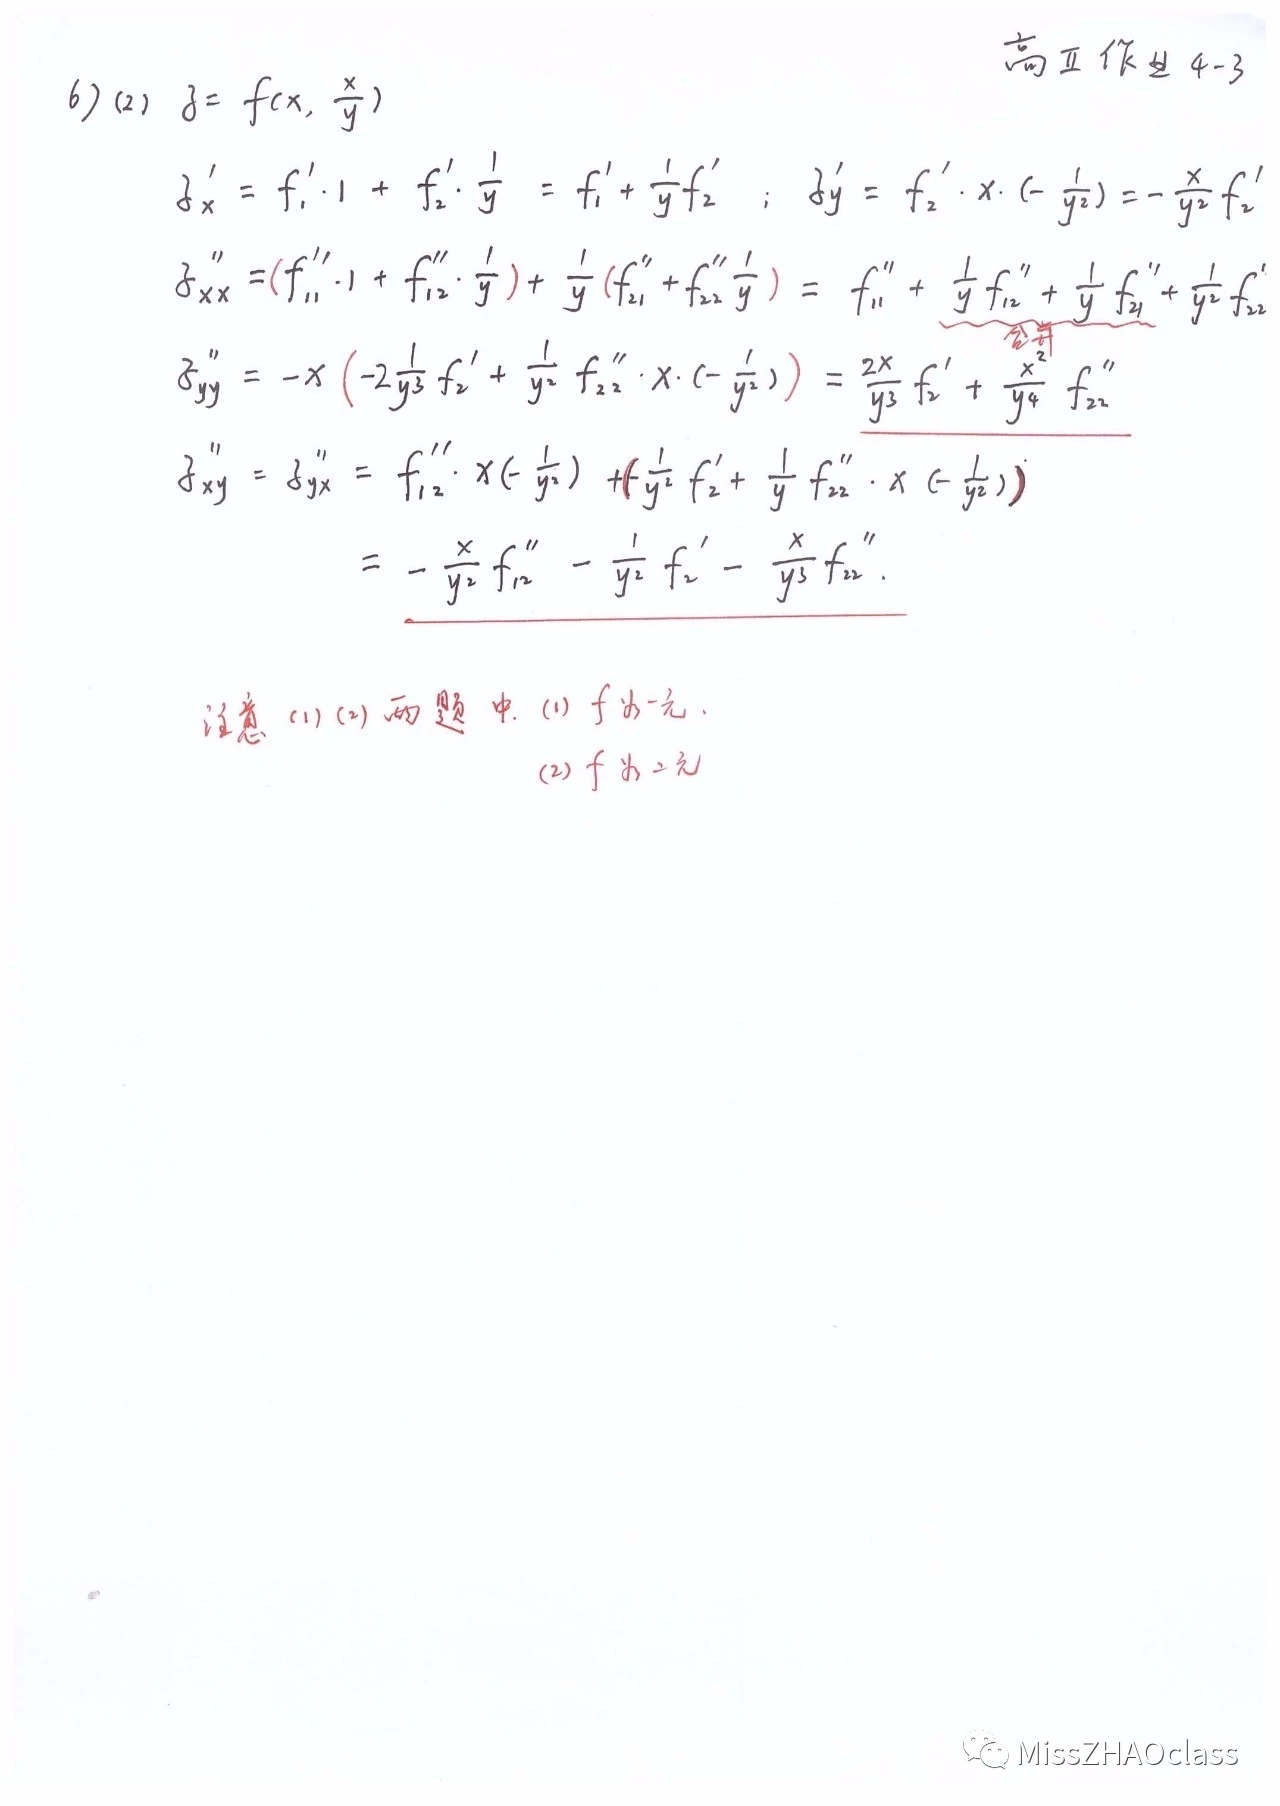 高Ⅱ作业4-3
6) (2) z = f(x, x/y)
z'x = f1'·1 + f2'·1/y = f1' + 1/y f2' ; z'y = f2'·x·(-1/y²) = -x/y² f2'
z''xx = (f11''·1 + f12''·1/y) + 1/y (f21'' + f22'' 1/y) = f11'' + 1/y f12'' + 1/y f21'' + 1/y² f22''
合并
z''yy = -x (-2 1/y³ f2' + 1/y² f22''·x·(-1/y²)) = 2x/y³ f2' + x²/y⁴ f22''
z''xy = z''yx = f12''·x(-1/y²) + (-1/y² f2' + 1/y f22''·x(-1/y²))
= -x/y² f12'' - 1/y² f2' - x/y³ f22''.
注意 (1)(2) 两题中. (1) f为一元.
(2) f为二元
MissZHAOclass